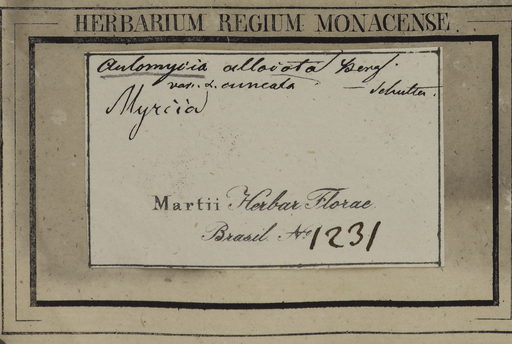 HERBARIUM REGIUM MONACENSE.
Aulomyrcia alloiota Berg.
var. α. cuneata — Schultes.
Myrcia
Martii Herbar Florae
Brasil. No 1231